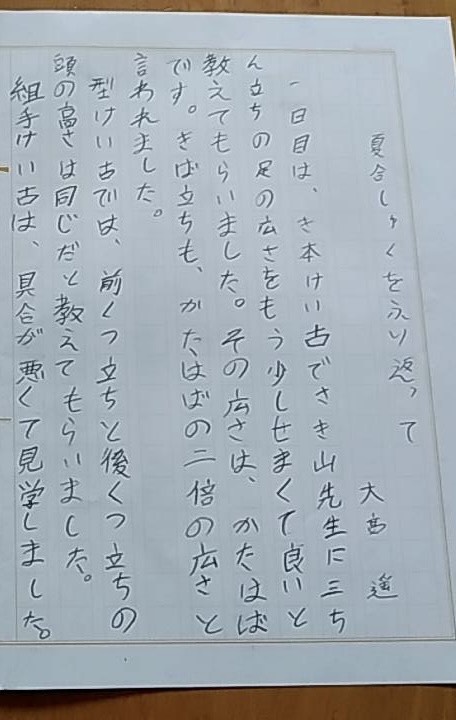 夏合しゅくをふり返って
大高 遥
一日目は、き本けい古でさき山先生に三ち
ん立ちの足の広さをもう少しせまくて良いと
教えてもらいました。その広さは、かたはば
です。きば立ちも、かたはばの二倍の広さと
言われました。
型けい古では、前くつ立ちと後くつ立ちの
頭の高さは同じだと教えてもらいました。
組手けい古は、具合が悪くて見学しました。